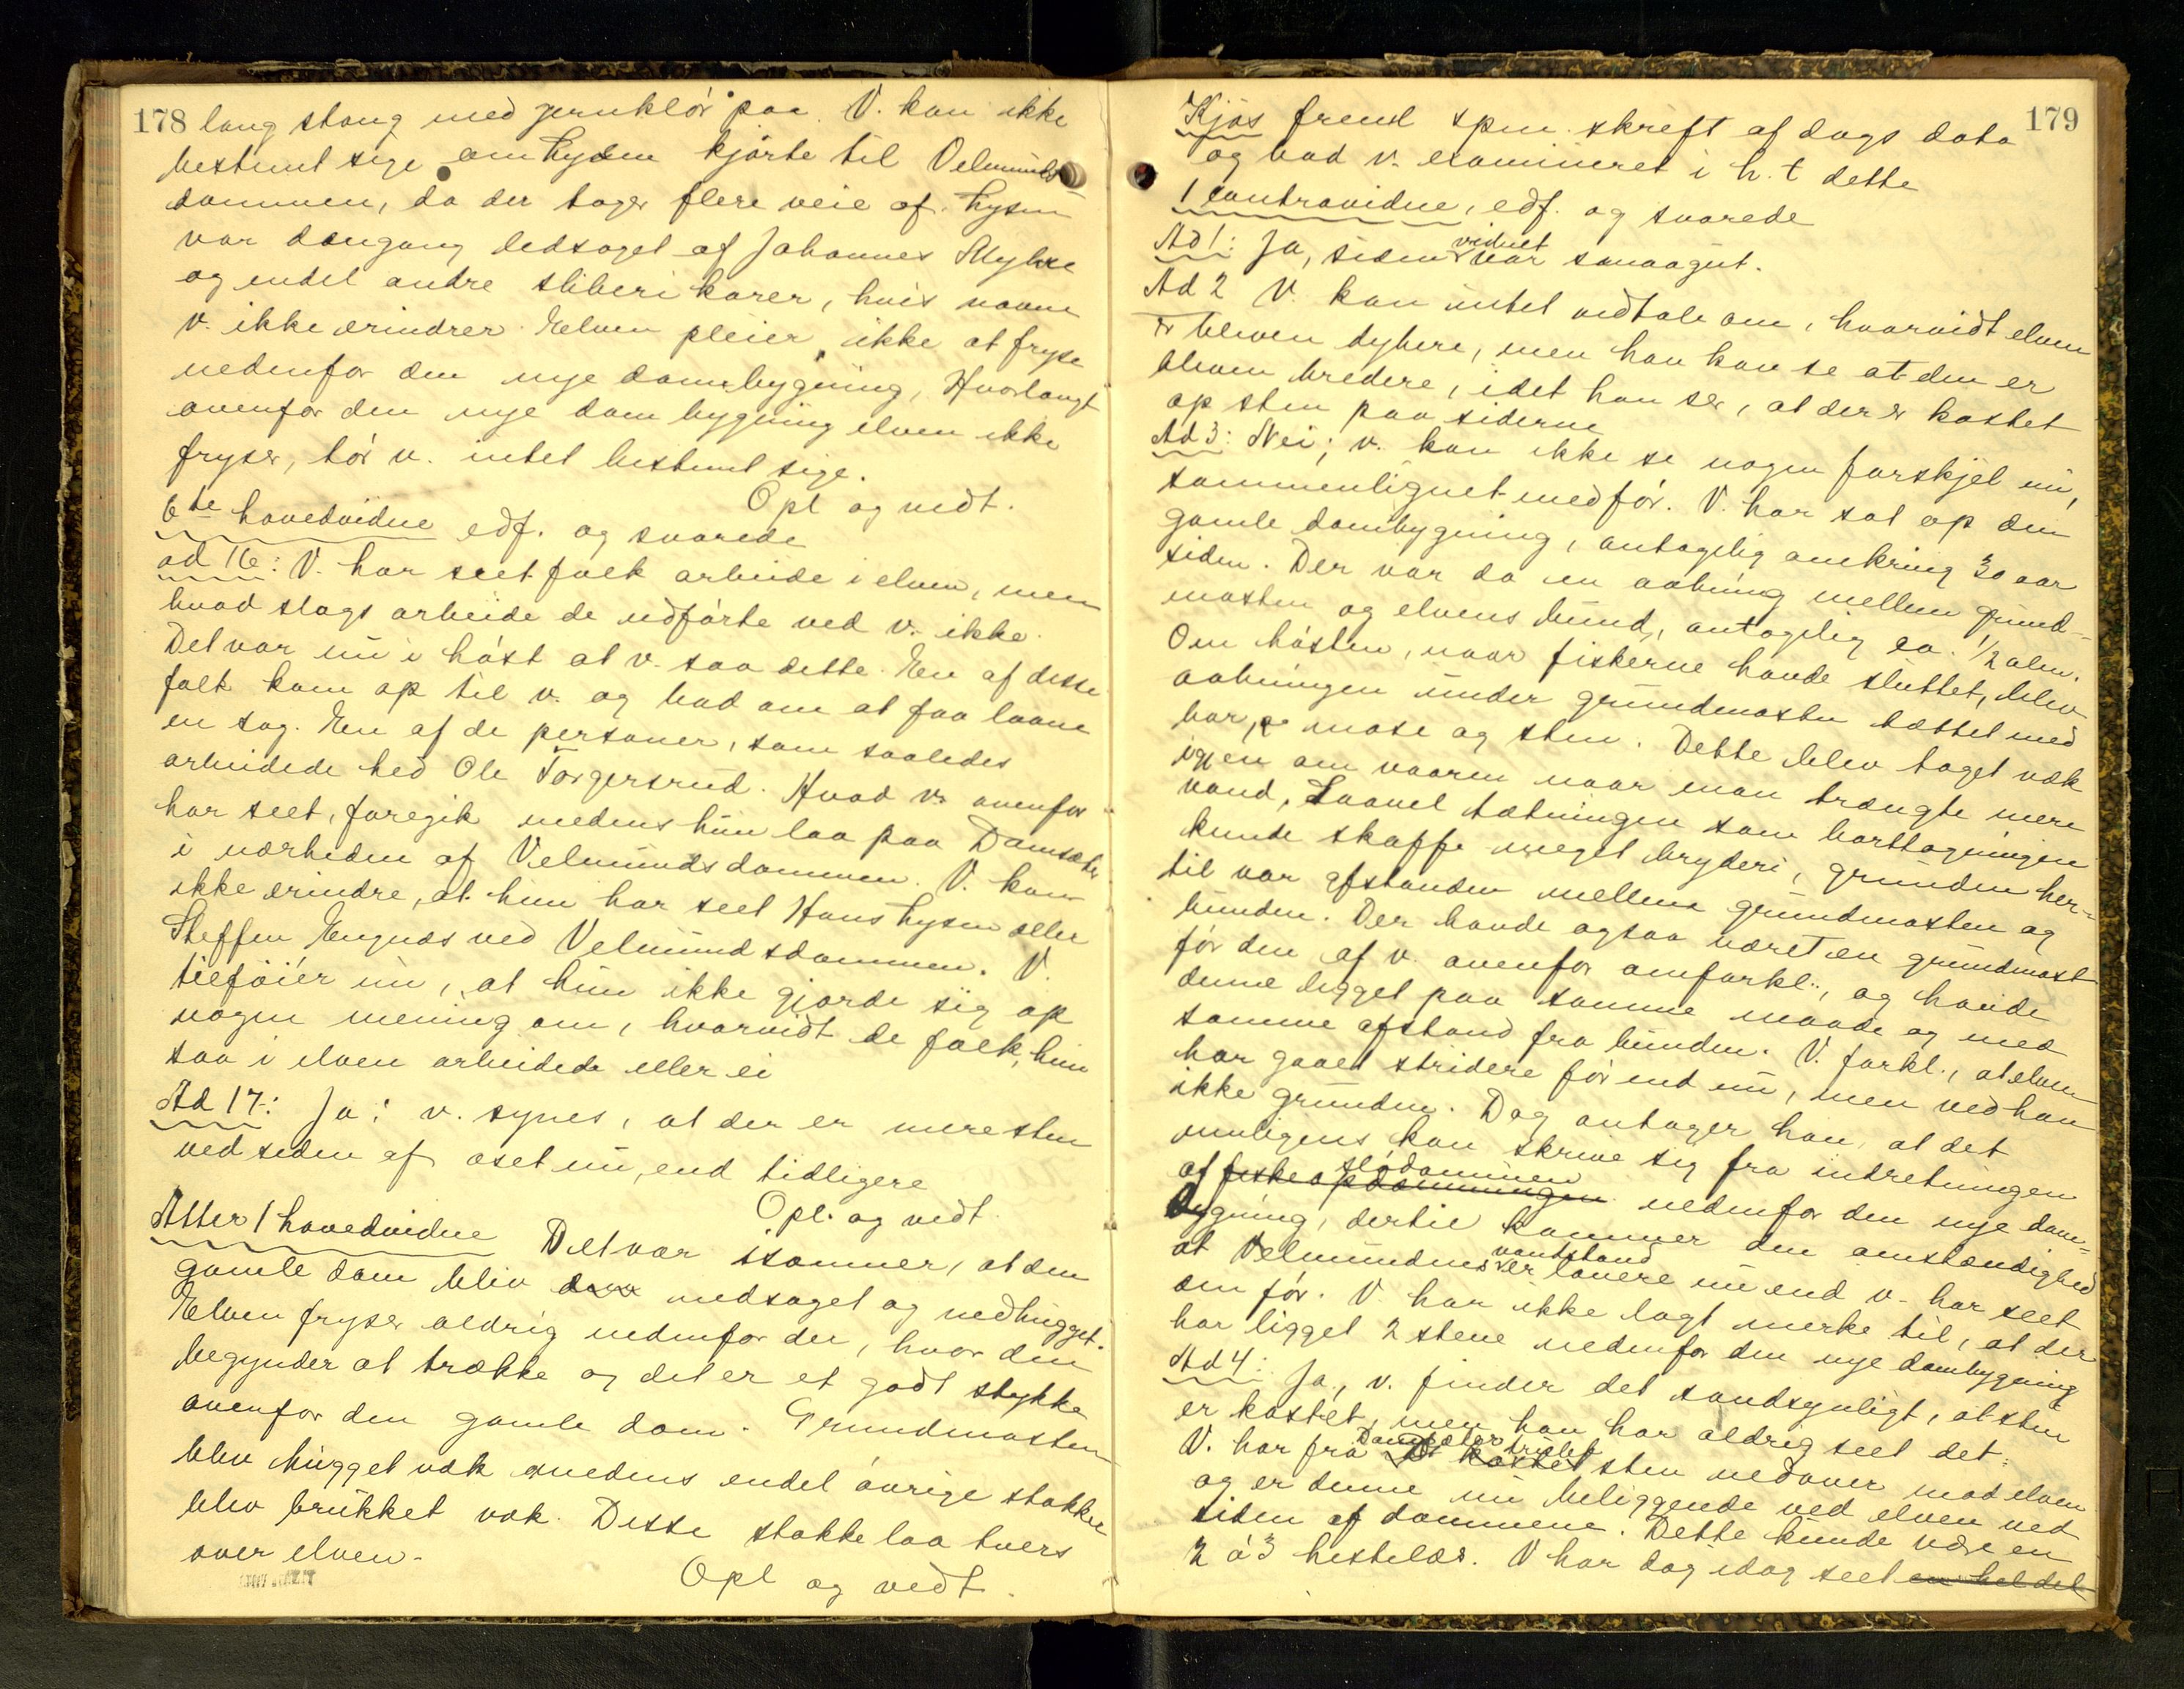 178
lang stang med jernklør paa. V. kan ikke
bestemt sige om Lysen kjørte til Velmunds
dammen, da der tager flere veie af. Lysen
var dengang ledsaget af Johannes Myhre
og endel andre sliberikarer, hvis navne
v. ikke erindrer. Elven pleier ikke at fryse
nedenfor den nye dambygning, Hvorlangt
ovenfor den nye dam bygning elven ikke
fryser, tør v. intet bestemt sige.
Opl og vedt.
6te hovedvidne edf. og svarede
ad 16: V. har seet folk arbeide i elven, men
hvad slags arbeide de udførte ved v. ikke.
Det var nu i høst at v. saa dette. En af disse
folk kom op til v. og bad om at faa laane
en sag. En af de personer, som saaledes
arbeidede hed Ole Torgersrud. Hvad v. ovenfor
har seet, foregik medens hun laa paa Damsæter
i nærheden af Velmundsdammen. V. kan
ikke erindre, at hun har seet Hans Lysen eller
Steffen Engnæs ved Velmundsdammen. V.
tilføier nu, at hun ikke gjorde sig op
nogen mening om, hvorvidt de folk, hun
saa i elven arbeidede eller ei
Ad 17: Ja; v. synes, at der er mere sten
ved siden af oset nu, end tidligere
Opl. og vedt.
Atter 1 hovedvidne Det var isommer, at den
gamle dam blev dæv nedsaget og nedhugget.
Elven fryser aldrig nedenfor der, hvor den
begynder at trække og det er et godt stykke
ovenfor den gamle dam. Grundmasten
blev hugget væk medens endel øvrige stokke
blev brukket væk. Disse stokke laa tvers
over elven.
Opl og vedt.
179
Kjøs freml spm. skrift af dags dato
og bad v. examineret i h. t dette
1 contravidne, edf. og svarede
vidnet
Ad 1: Ja, siden var smaagut.
Ad 2 V. kan intet udtale om, hvorvidt elven
er bleven dybere, men han kan se at den er
bleven bredere, idet han ser, at der er kastet
op sten paa siderne
Ad 3: Nei; v. kan ikke se nogen forskjel nu,
sammenlignet med før. V. har sat op den
gamle dambygning, antagelig omkring 30 aar
siden. Der var da en aabning mellem grund-
masten og elvens bund, antagelig ca. 1/2 alen.
Om høsten, naar fiskerne havde sluttet, blev
aabningen under grundmasten tættet med
bar, mose og sten. Dette blev taget væk
igjen om vaaren naar man trængte mere
vand, Saavel tætningen som borttagningen
kunde skaffe meget bryderi, grunden her-
til var afstanden mellem grundmasten og
bunden. Der havde ogsaa været en grundmast
før den af v. ovenfor omforkl., og havde
denne ligget paa samme maade og med
samme afstand fra bunden. V. forkl., at elven
har gaaet stridere før end nu, men ved han
ikke grunden. Dog antager han, at det
muligens kan skrive sig fra indretningen
slødammen
af fiskeopdæmningen nedenfor den nye dam-
bygning, dertil kommer den omstændighed
vandstand
at Velmundens er lavere nu end v. har seet
den før. V. har ikke lagt merke til, at der
har ligget 2 stene nedenfor den nye dambygning
Ad 4: Ja, v. finder det sandsynligt, at sten
er kastet, men han har aldrig seet det.
Damsæter trillet
V. har fra kastet sten nedover mod elven
og er denne nu beliggende ved elven ved
siden af dammene. Dette kunde være en
2 á 3 hestelæs. V har dog idag seet en hel del